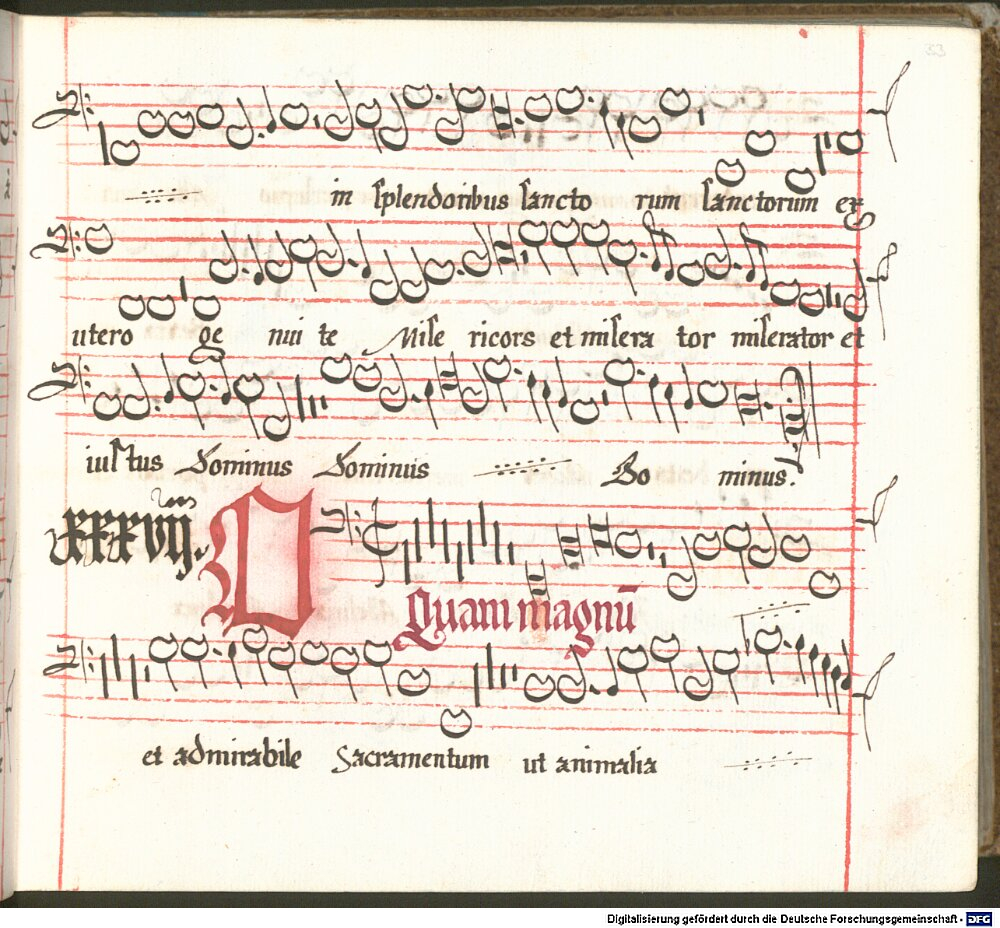 33
in splendoribus sancto rum sanctorum ex
utero ge nui te Mise ricors et misera tor miserator et
iustus Dominus Dominus Do minus.
xxxviij. O
Quam magnū
et admirabile Sacramentum ut animalia
Digitalisierung gefördert durch die Deutsche Forschungsgemeinschaft - DFG